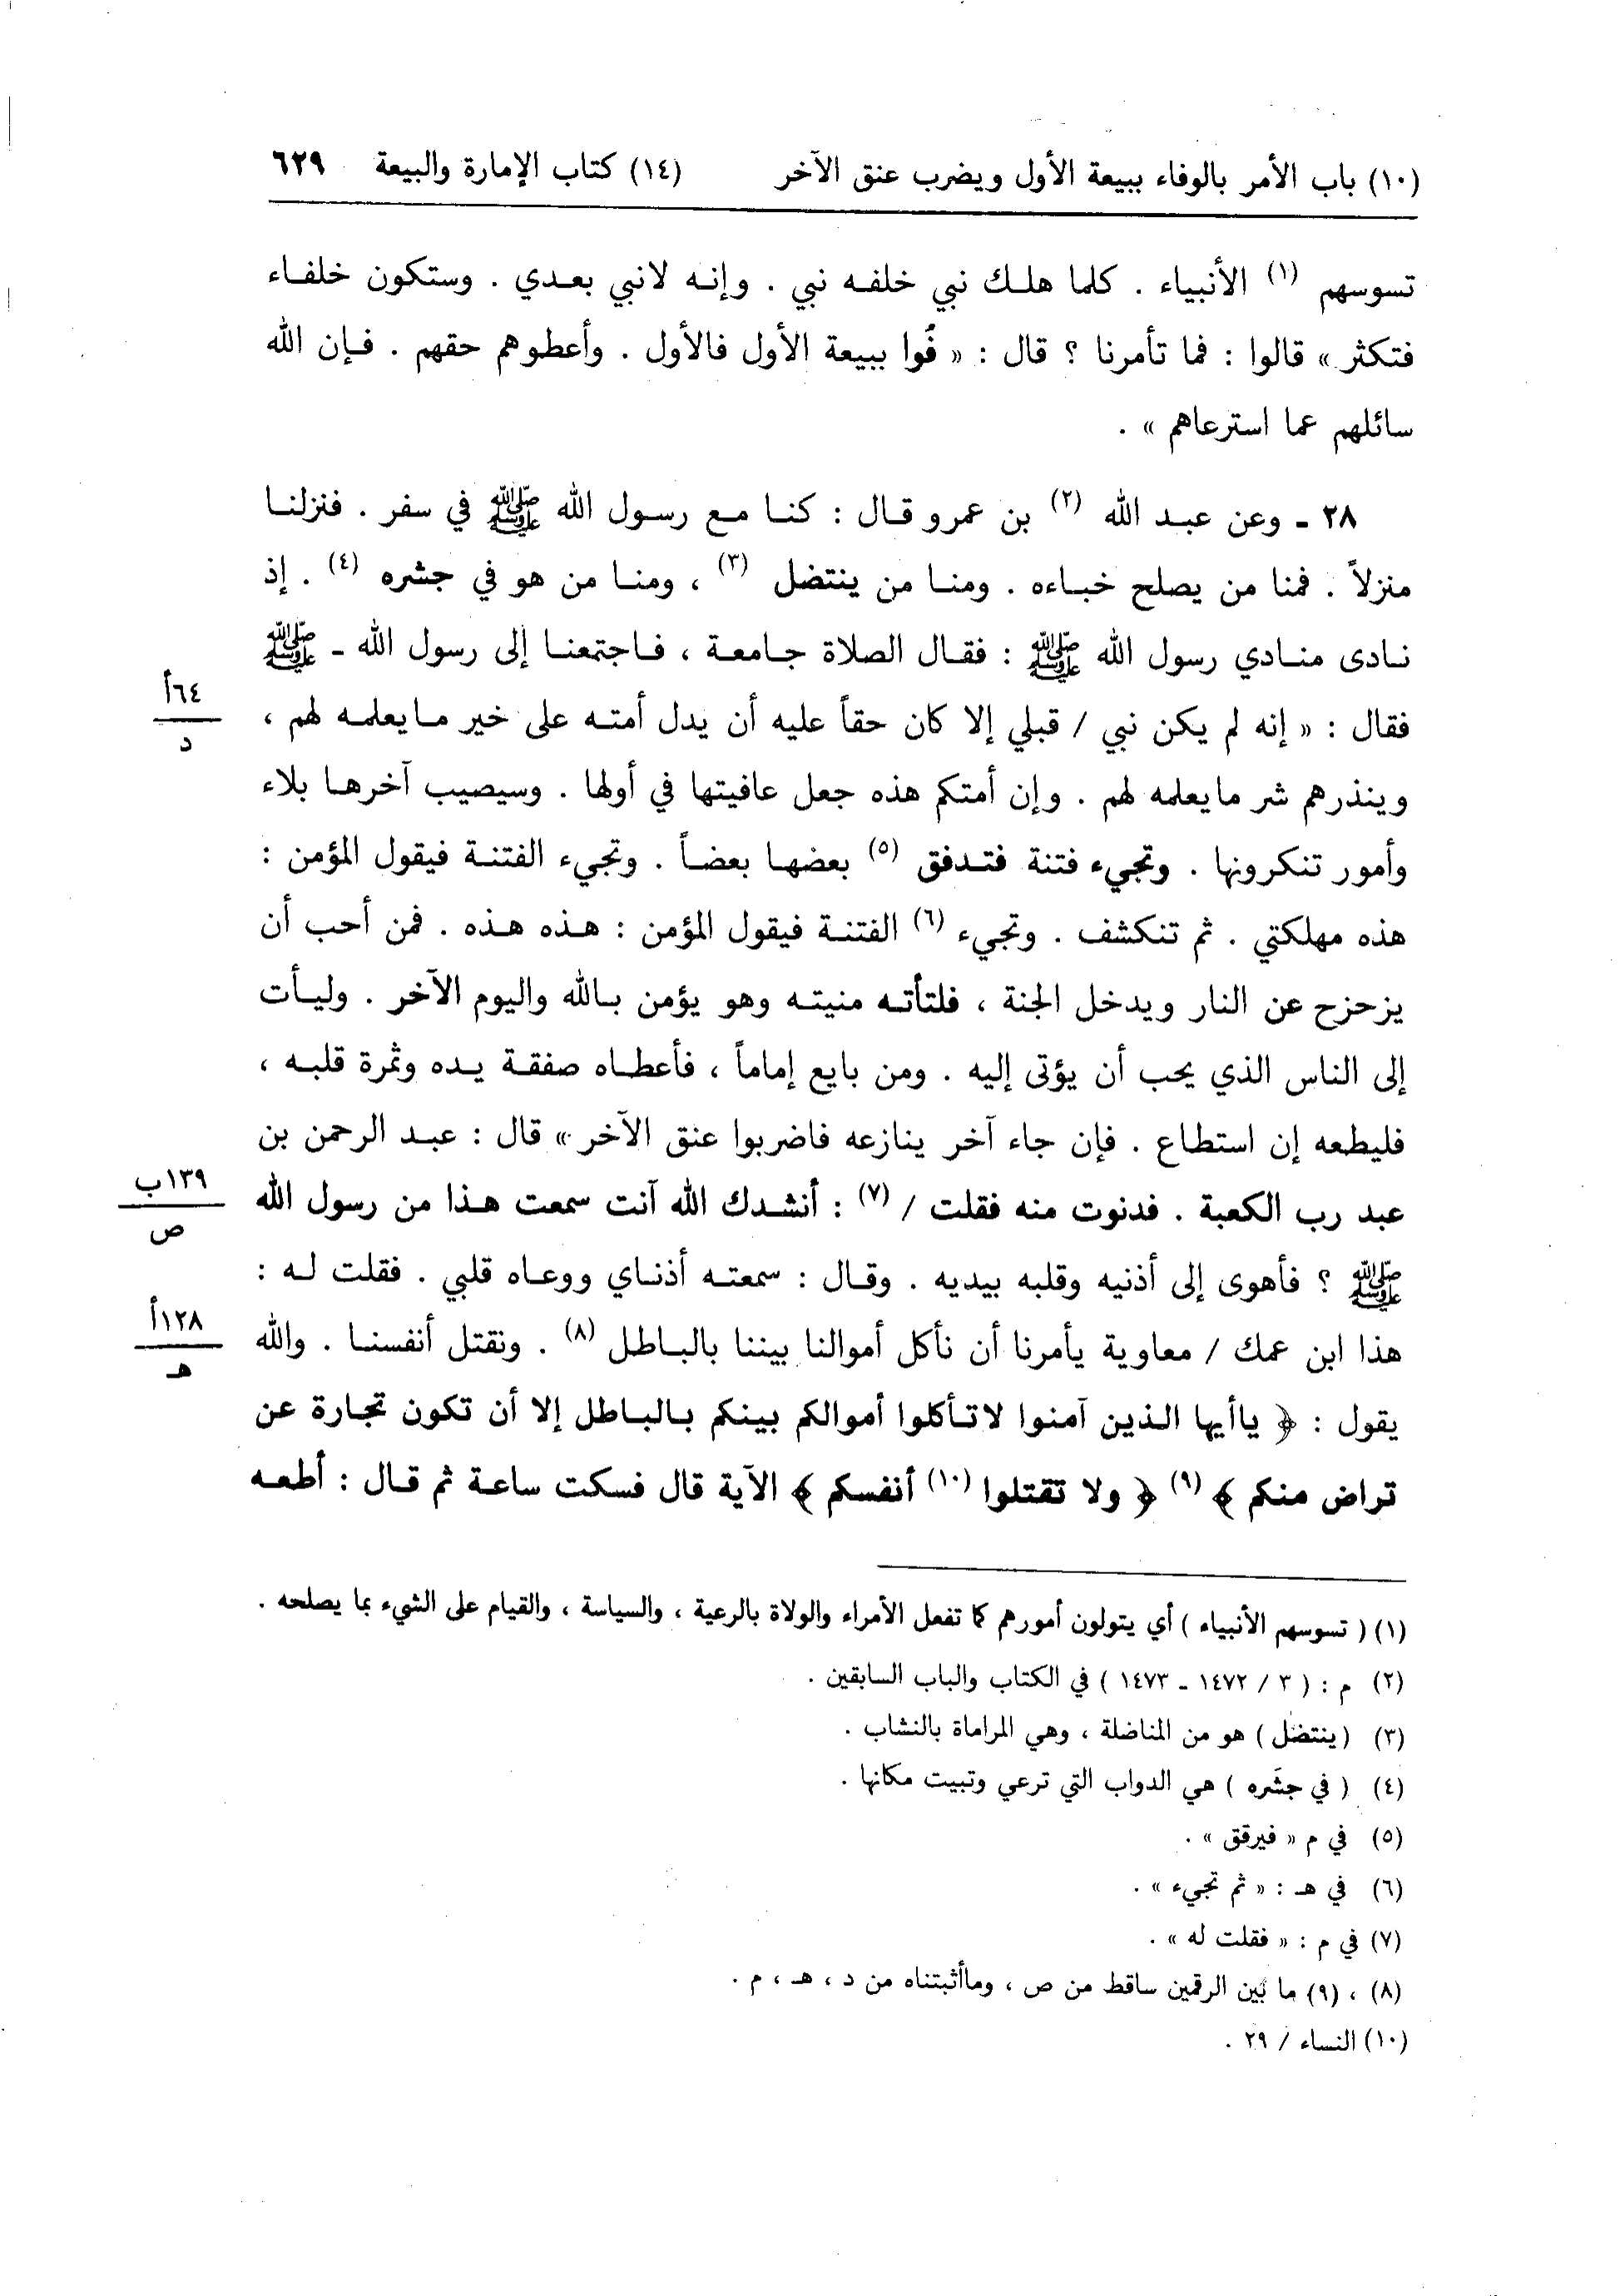 (١٠) باب الأمر بالوفاء ببيعة الأول ويضرب عنق الآخر (١٤) كتاب الإمارة والبيعة ٦٢٩
تسوسهم (١) الأنبياء . كلما هلك نبي خلفه نبي . وإنه لانبي بعدي . وستكون خلفاء
فتكثر » قالوا : فما تأمرنا ؟ قال : « فُوا ببيعة الأول فالأول . وأعطوهم حقهم . فإن الله
سائلهم عما استرعاهم » .
٢٨ ـ وعن عبد الله (٢) بن عمرو قال : كنا مع رسول الله ﷺ في سفر . فنزلنا
منزلاً . فمنا من يصلح خباءه . ومنا من ينتضل (٣) ، ومنا من هو في جشره (٤) . إذ
نادى منادي رسول الله ﷺ : فقال الصلاة جامعة ، فاجتمعنا إلى رسول الله ـ ﷺ
فقال : « إنه لم يكن نبي / قبلي إلا كان حقاً عليه أن يدل أمته على خير مايعلمه لهم ،
٦٤أ
د
وينذرهم شر مايعلمه لهم . وإن أمتكم هذه جعل عافيتها في أولها . وسيصيب آخرها بلاء
وأمور تنكرونها . وتجيء فتنة فتدفق (٥) بعضها بعضاً . وتجيء الفتنة فيقول المؤمن :
هذه مهلكتي . ثم تنكشف . وتجيء (٦) الفتنة فيقول المؤمن : هذه هذه . فمن أحب أن
يزحزح عن النار ويدخل الجنة ، فلتأته منيته وهو يؤمن بالله واليوم الآخر . وليأت
إلى الناس الذي يحب أن يؤتى إليه . ومن بايع إماماً ، فأعطاه صفقة يده وثمرة قلبه ،
فليطعه إن استطاع . فإن جاء آخر ينازعه فاضربوا عنق الآخر » قال : عبد الرحمن بن
عبد رب الكعبة . فدنوت منه فقلت / (٧) : أنشدك الله آنت سمعت هذا من رسول الله
١٣٩ب
ص
ﷺ ؟ فأهوى إلى أذنيه وقلبه بيديه . وقال : سمعته أذناي ووعاه قلبي . فقلت له :
هذا ابن عمك / معاوية يأمرنا أن نأكل أموالنا بيننا بالباطل (٨) . ونقتل أنفسنا . والله
١٢٨أ
هـ
يقول : ﴿ ياأيها الذين آمنوا لاتأكلوا أموالكم بينكم بالباطل إلا أن تكون تجارة عن
تراض منكم ﴾ (٩) ﴿ ولا تقتلوا (١٠) أنفسكم ﴾ الآية قال فسكت ساعة ثم قال : أطعه
(١) ( تسوسهم الأنبياء ) أي يتولون أمورهم كما تفعل الأمراء والولاة بالرعية ، والسياسة ، والقيام على الشيء بما يصلحه .
(٢) م : ( ٣ / ١٤٧٢ ـ ١٤٧٣ ) في الكتاب والباب السابقين .
(٣) ( ينتضل ) هو من المناضلة ، وهي المراماة بالنشاب .
(٤) ( في جشَره ) هي الدواب التي ترعي وتبيت مكانها .
(٥) في م « فيرقق » .
(٦) في هـ : « ثم تجيء » .
(٧) في م : « فقلت له » .
(٨) ، (٩) ما بين الرقمين ساقط من ص ، وماأثبتناه من د ، هـ ، م .
(١٠) النساء / ٢٩ .